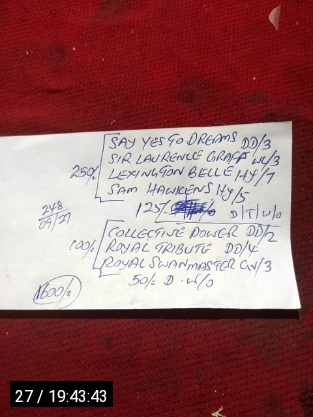 SAY YES TO DREAMS DD/3
SIR LAURENCE GRAFF W/3
250/ LEXINGTON BELLE HY/7
SAM HAWKENS HY/5
248
09/27
125/ D/T/W/O
COLLECTIVE POWER DD/2
100/ ROYAL TRIBUTE DD/4
ROYAL SWANMASTER CW/3
50/ D.W/O
1600/
27 / 19:43:43